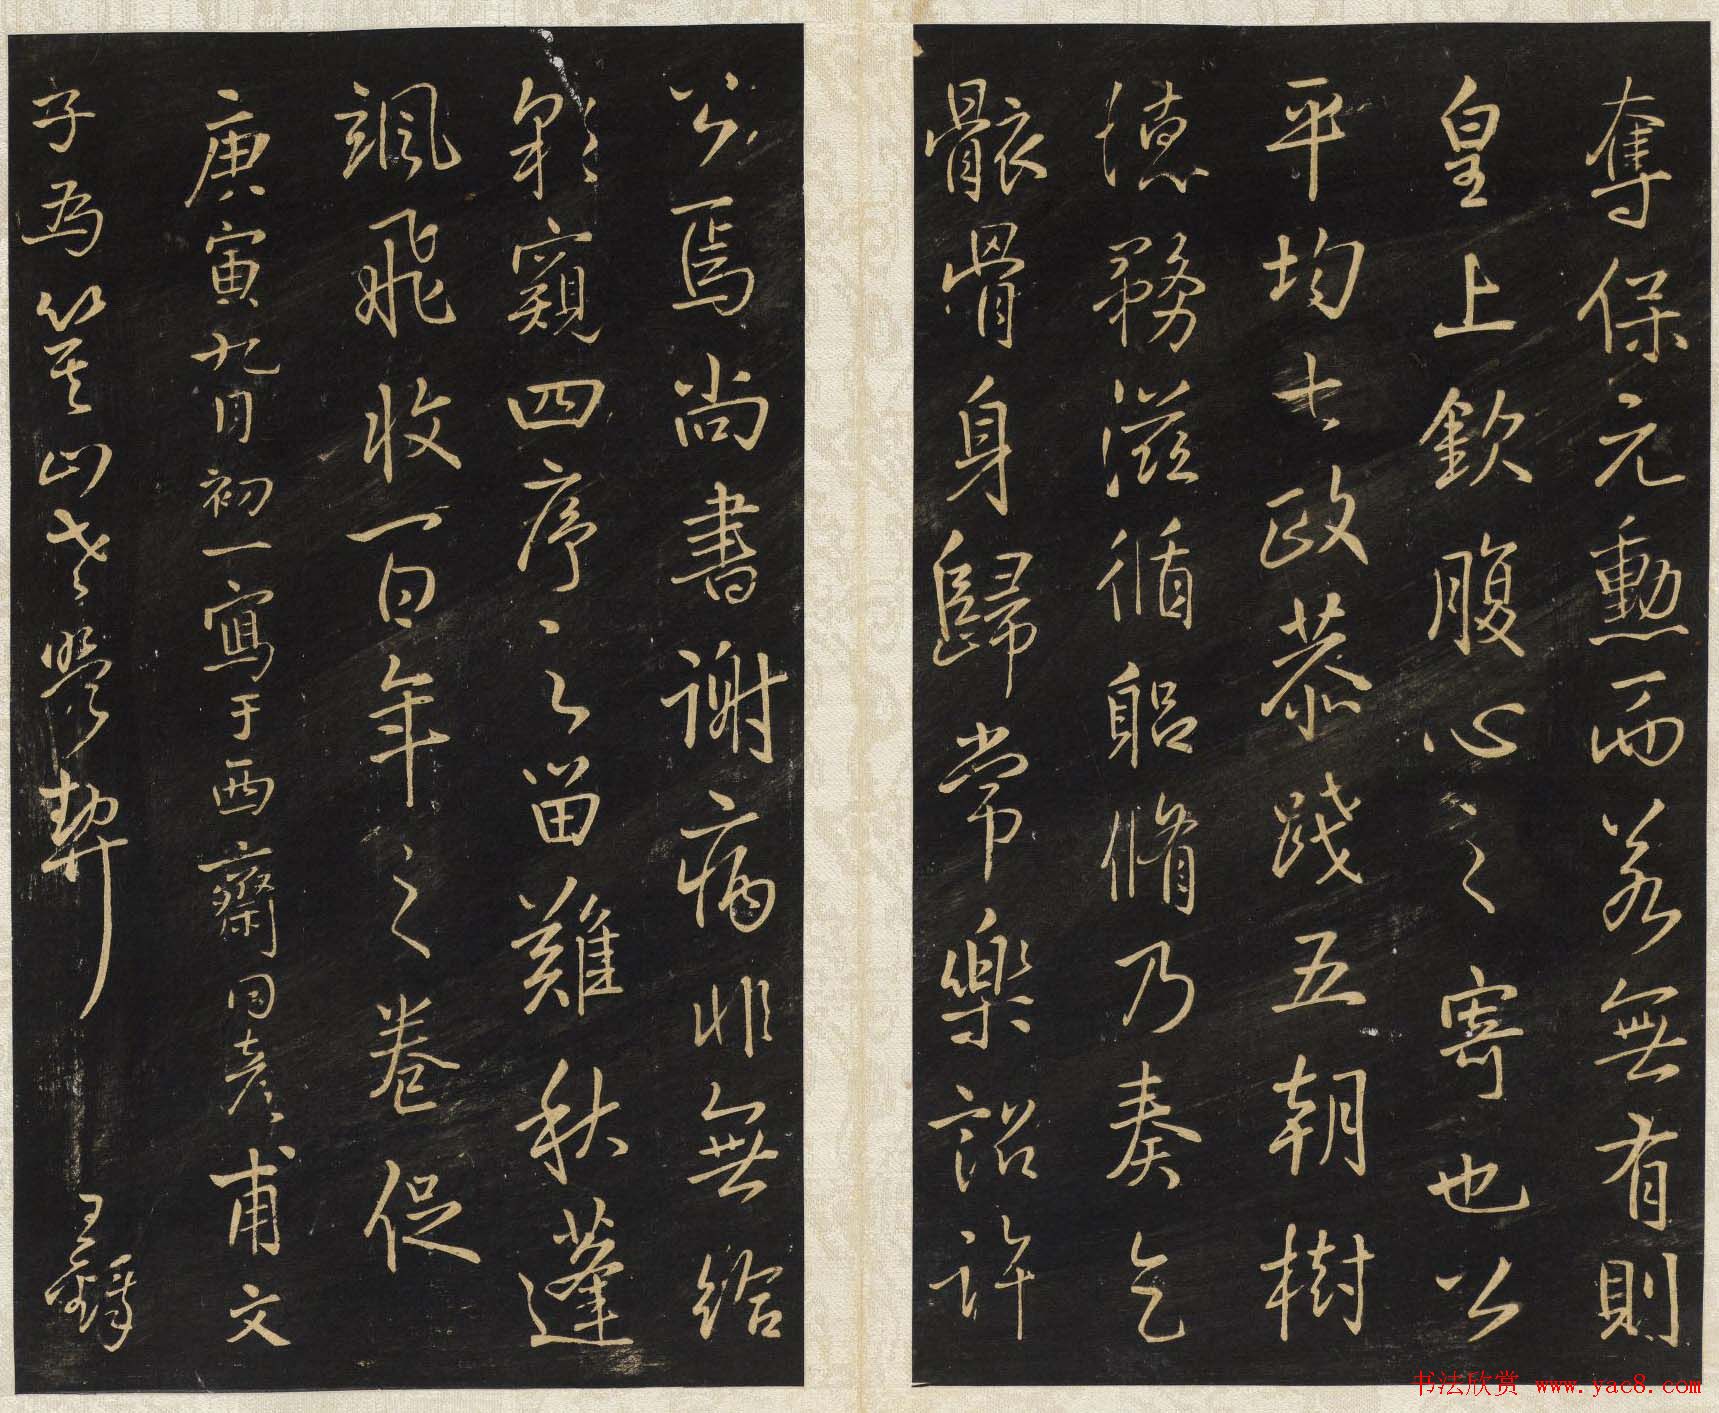 奪保元勳而若無有則
皇上欽腹心之寄也公
平均七政恭踐五朝樹
德務滋循躬脩乃奏乞
骸骨身歸常樂詔許
公焉尚書謝病非無給
窺四序之留難秋蓬
颯飛收百年之卷促
庚寅九月初一寫于西齋同彥甫文
子為山老契
王鐸
书法欣赏 www.yac8.com